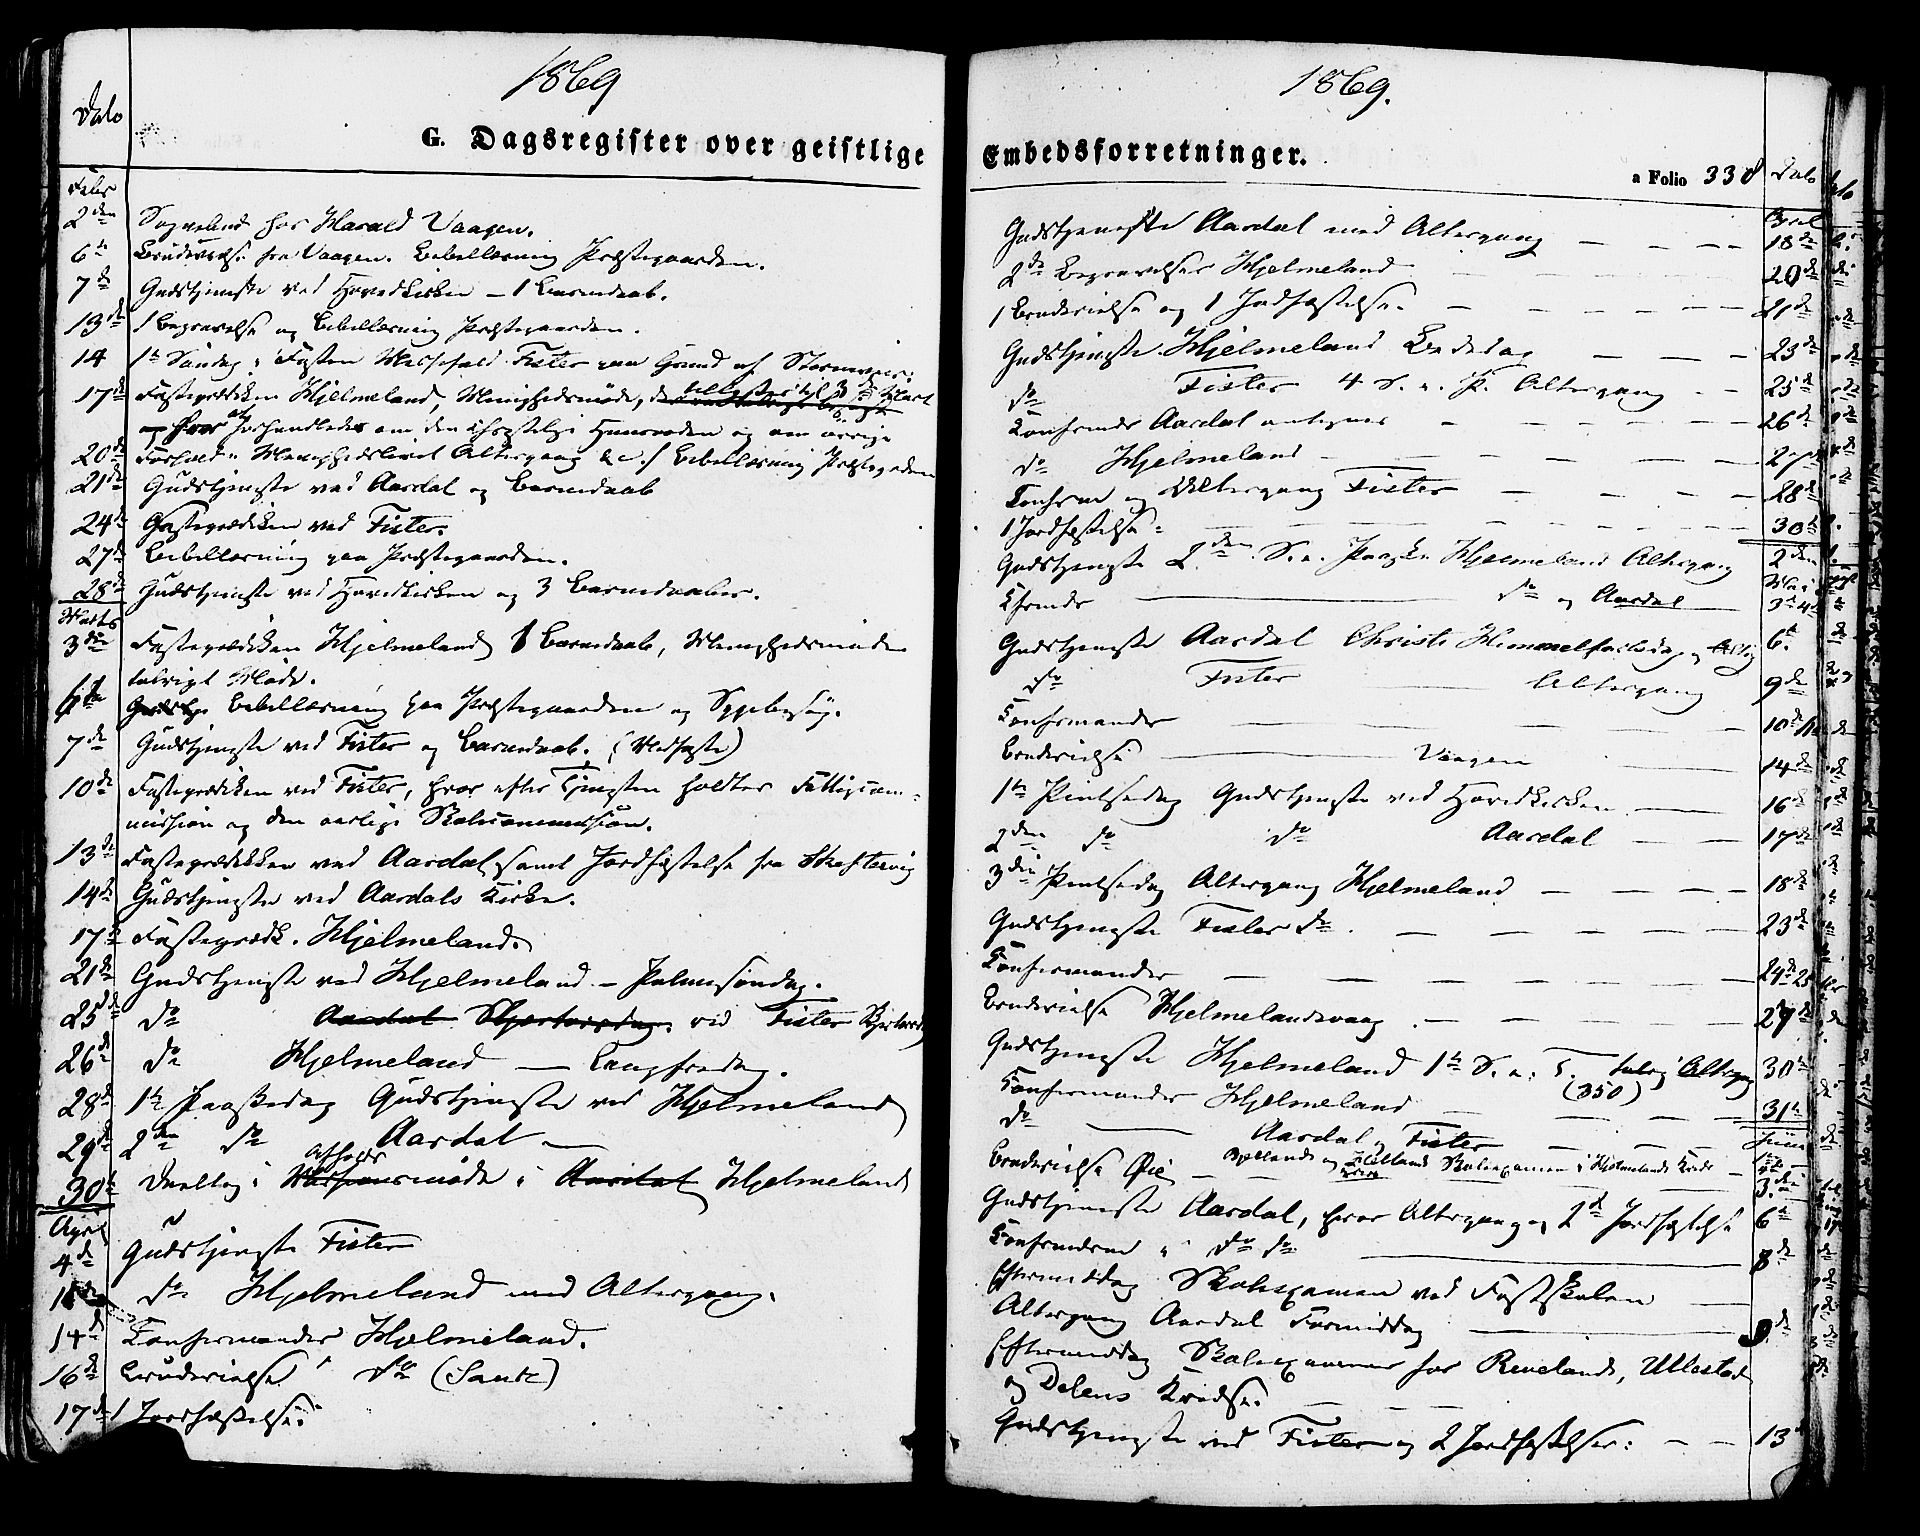 1869
Dato
G. Dagsregister over geistlige
Febr
2den Sognebud hos Harald Vaagen.
6te Brudevielse fra Vaagen. Bibellæsning Præstegaarden.
7de Gudstjeneste ved Hovedkirken – 1 Barnedaab.
13de 1 Begravelse og Bibellæsning Præstegaarden.
14 1te Søndag i Fasten Messefald Fister paa Grund af Stormveir.
17de Fasteprædiken Hjelmeland, Menighedsmøde, 3die Marts
forhandledes om den christelige og om øvrige
20de Forhold i Menighedslivet Altergang &c. / Bibellæsning Præstegaarden
21de Gudstjeneste ved Aardal og Barnedaab
24de Fasteprædiken ved Fister.
27de Bibellæsning paa Præstegaarden.
28de Gudstjeneste ved Hovedkirken og 3 Barnedaaber.
Marts
3die Fasteprædiken Hjelmeland 1 Barnedaab, Menighedsmøde
talrigt Møde.
6te Gudstj Bibellæsning paa Præstegaarden og Sygebesøg.
7de Gudstjeneste ved Fister og Barnedaab.
10de Fasteprædiken ved Fister, hvor efter Tjenesten holdtes Fattigcom-
mission og den aarlige Skolecommission.
13de Fasteprædiken ved Aardal samt Jordfæstelse fra
14de Gudstjeneste ved Aardals Kirke.
17de Fasteprædk. Hjelmeland.
21de Gudstjeneste ved Hjelmeland – Palmesøndag.
25de do Aardal Skjertorsdag ved Fister Skjertorsd
26de do Hjelmeland — Langfredag.
28de 1te Paaskedag Gudstjeneste ved Hjelmeland
29de 2den do Aardal —
30te Deeltog i møde i Aardal Hjelmeland
April
4de Gudstjeneste Fister
do Hjelmeland med Altergang.
14de Confirmander Hjelmeland.
16de Brudevielse do (Sande)
17de 1 Jordfæstelse.
1869.
Embedsforretninger.
a Folio 338 Dato
April
Gudstjeneste Aardal med Altergang — — — 18de
2de Begravelser Hjelmeland — — — 20de
1 Brudevielse og 1 Jordfæstelse. — — — 21de
Gudstjeneste Hjelmeland Bededag — — — 23de
do Fister 4 S. e. P. Altergang — 25de
Confirmder Aardal — — — 26de
do Hjelmeland — — — 27de
Confirm og Altergang Fister — — — 28de
1 Jordfæstelse — — — 30te
Gudstjeneste S. e. Paaske Hjelmeland Altergang 2den
Mai
Cfrmder — do og Aardal — 3de 4de
Gudstjeneste Aardal Christi Himmelfartsdag og Altg 6te
do Fister — Altergang 9de
Confirmander — — — 10de
Brudevielse — Vaagen — 14de
1te Pintsedag Gudstjeneste ved Hovedkirken — 16de
2den do do Aardal — 17de
3die Pintsedag Altergang Hjelmeland — — — 18de
Gudstjeneste Fister do. — — — 23de
Confirmander — — — 24de 25
Brudevielse Hjelmelandsvaag. — — — 27de
Gudstjeneste Hjelmeland 1te S. e. T. talrig Altergang 30te
(350)
Confirmander Hjelmeland — — — 31te
Juni
do — Aardal og Fister — — —
Brudevielse Øie — og Skoleexamen i Hjelmelands Kreds — 3die
Gudstjeneste Aardal, hvor Altergang og 2de Jordfæstelser 6te
Confirmdrne i do do — 8de
Eftermiddag Skoleexamen ved Fastskolen —
Altergang Aardal Formiddag — 9de
Eftermiddag Skoleexamener for Riveland, Ullestad
og Kredse. — — —
Gudstjeneste ved Fister og 2 Jordfæstelser. — — 13de